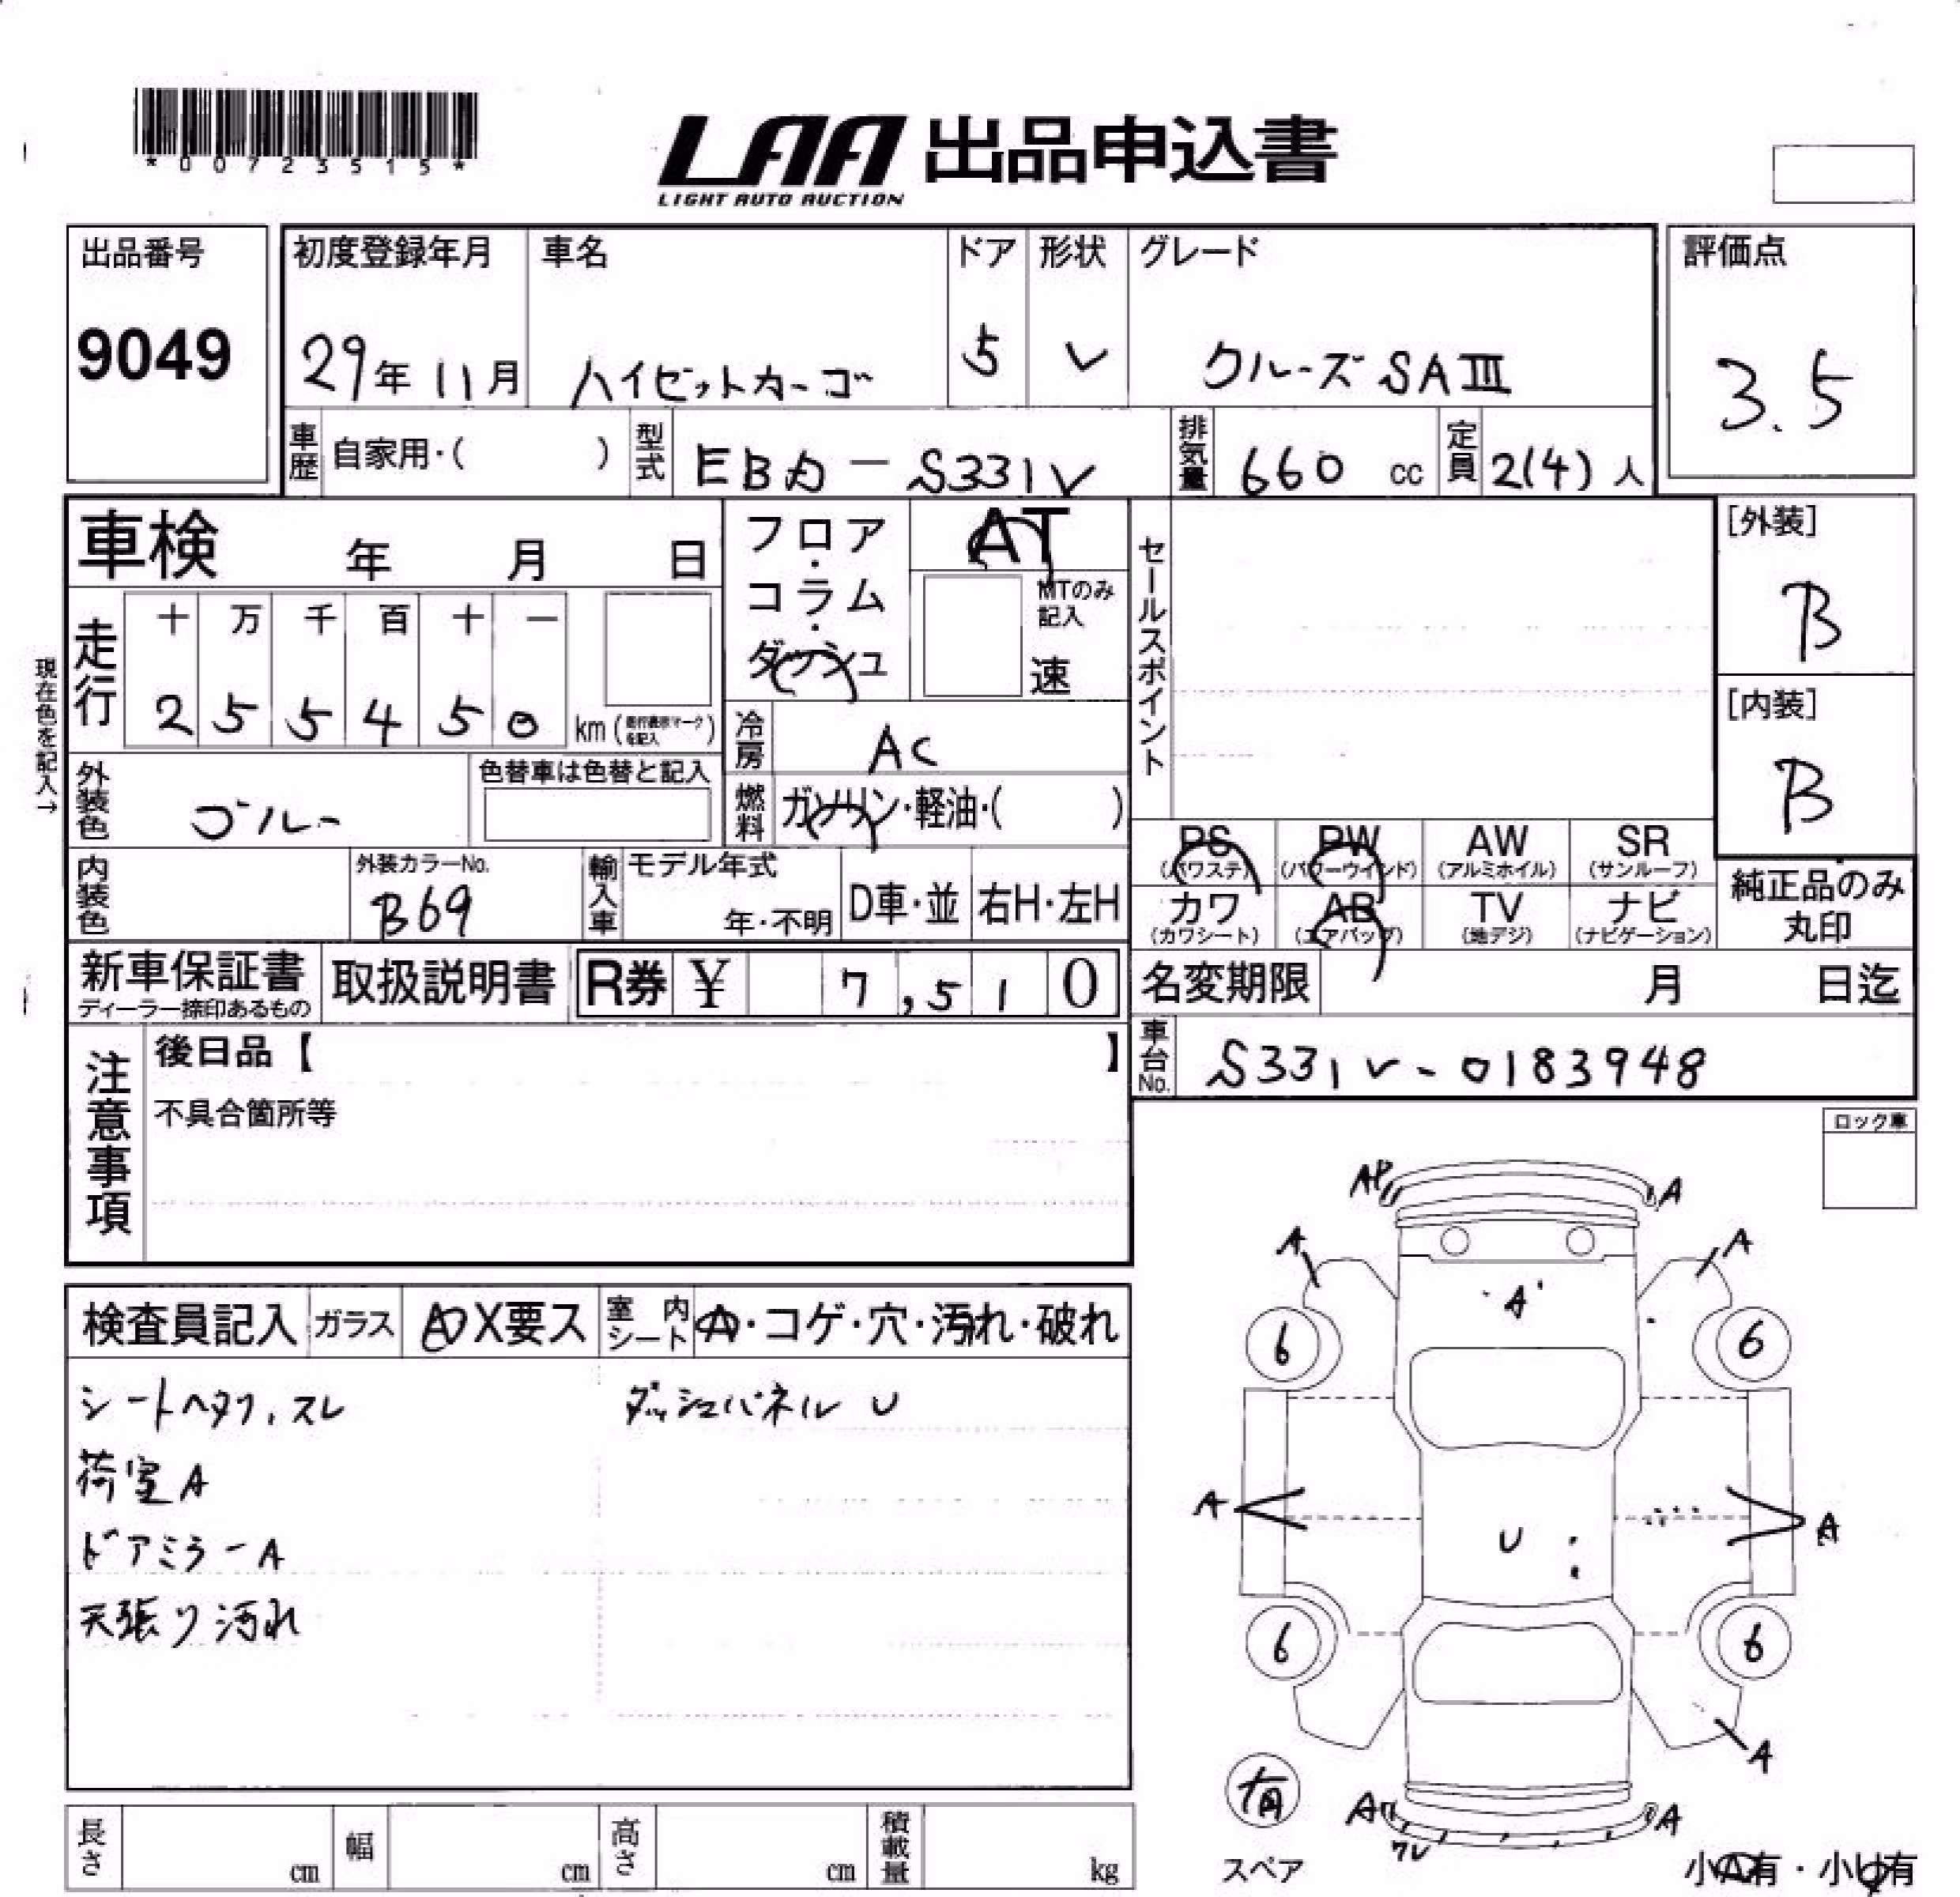 *00723515*
LAA 出品申込書
LIGHT AUTO AUCTION
出品番号 初度登録年月 車名 ドア 形状 グレード 評価点
9049 29年11月 ハイゼットカーゴ 5 V クルーズSAⅢ 3.5
車歴 自家用・( ) 型式 EBD-S331V 排気量 660 cc 定員 2(4) 人
車検 年 月 日
フロア・コラム・ダッシュ
AT
MTのみ記入
速
セールスポイント
[外装]
B
[内装]
B
現在色を記入→
走行 十 万 千 百 十 一
2 5 5 4 5 0 km (走行表示マークを記入)
冷房 AC
外装色 ブルー 色替車は色替と記入
燃料 ガソリン・軽油・( )
PS (パワステ) PW (パワーウインド) AW (アルミホイル) SR (サンルーフ)
カワ (カワシート) AB (エアバッグ) TV (地デジ) ナビ (ナビゲーション)
純正品のみ丸印
内装色 外装カラーNo. B69 輸入車 モデル年式 年・不明 D車・並 右H・左H
新車保証書 ディーラー捺印あるもの 取扱説明書 R券 ¥ 7,510
名変期限 月 日迄
車台No. S331V-0183948
注意事項 後日品【 】
不具合箇所等
ロック車
検査員記入 ガラス A X要ス 室内シート A・コゲ・穴・汚れ・破れ
シートヘタリ、スレ ダッシュパネル U
荷室A
ドアミラーA
天張り汚れ
AP A
A A
A
6 6
A U A
6 6
A
有 A A
ワレ
スペア 小A有・小U有
長さ cm 幅 cm 高さ cm 積載量 kg